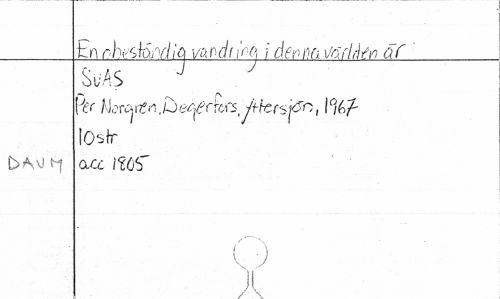 En obeständig vandring i denna världen är
SVAS
Per Norgren, Degerfors, Attersjön, 1967
10str
DAUM acc 1805